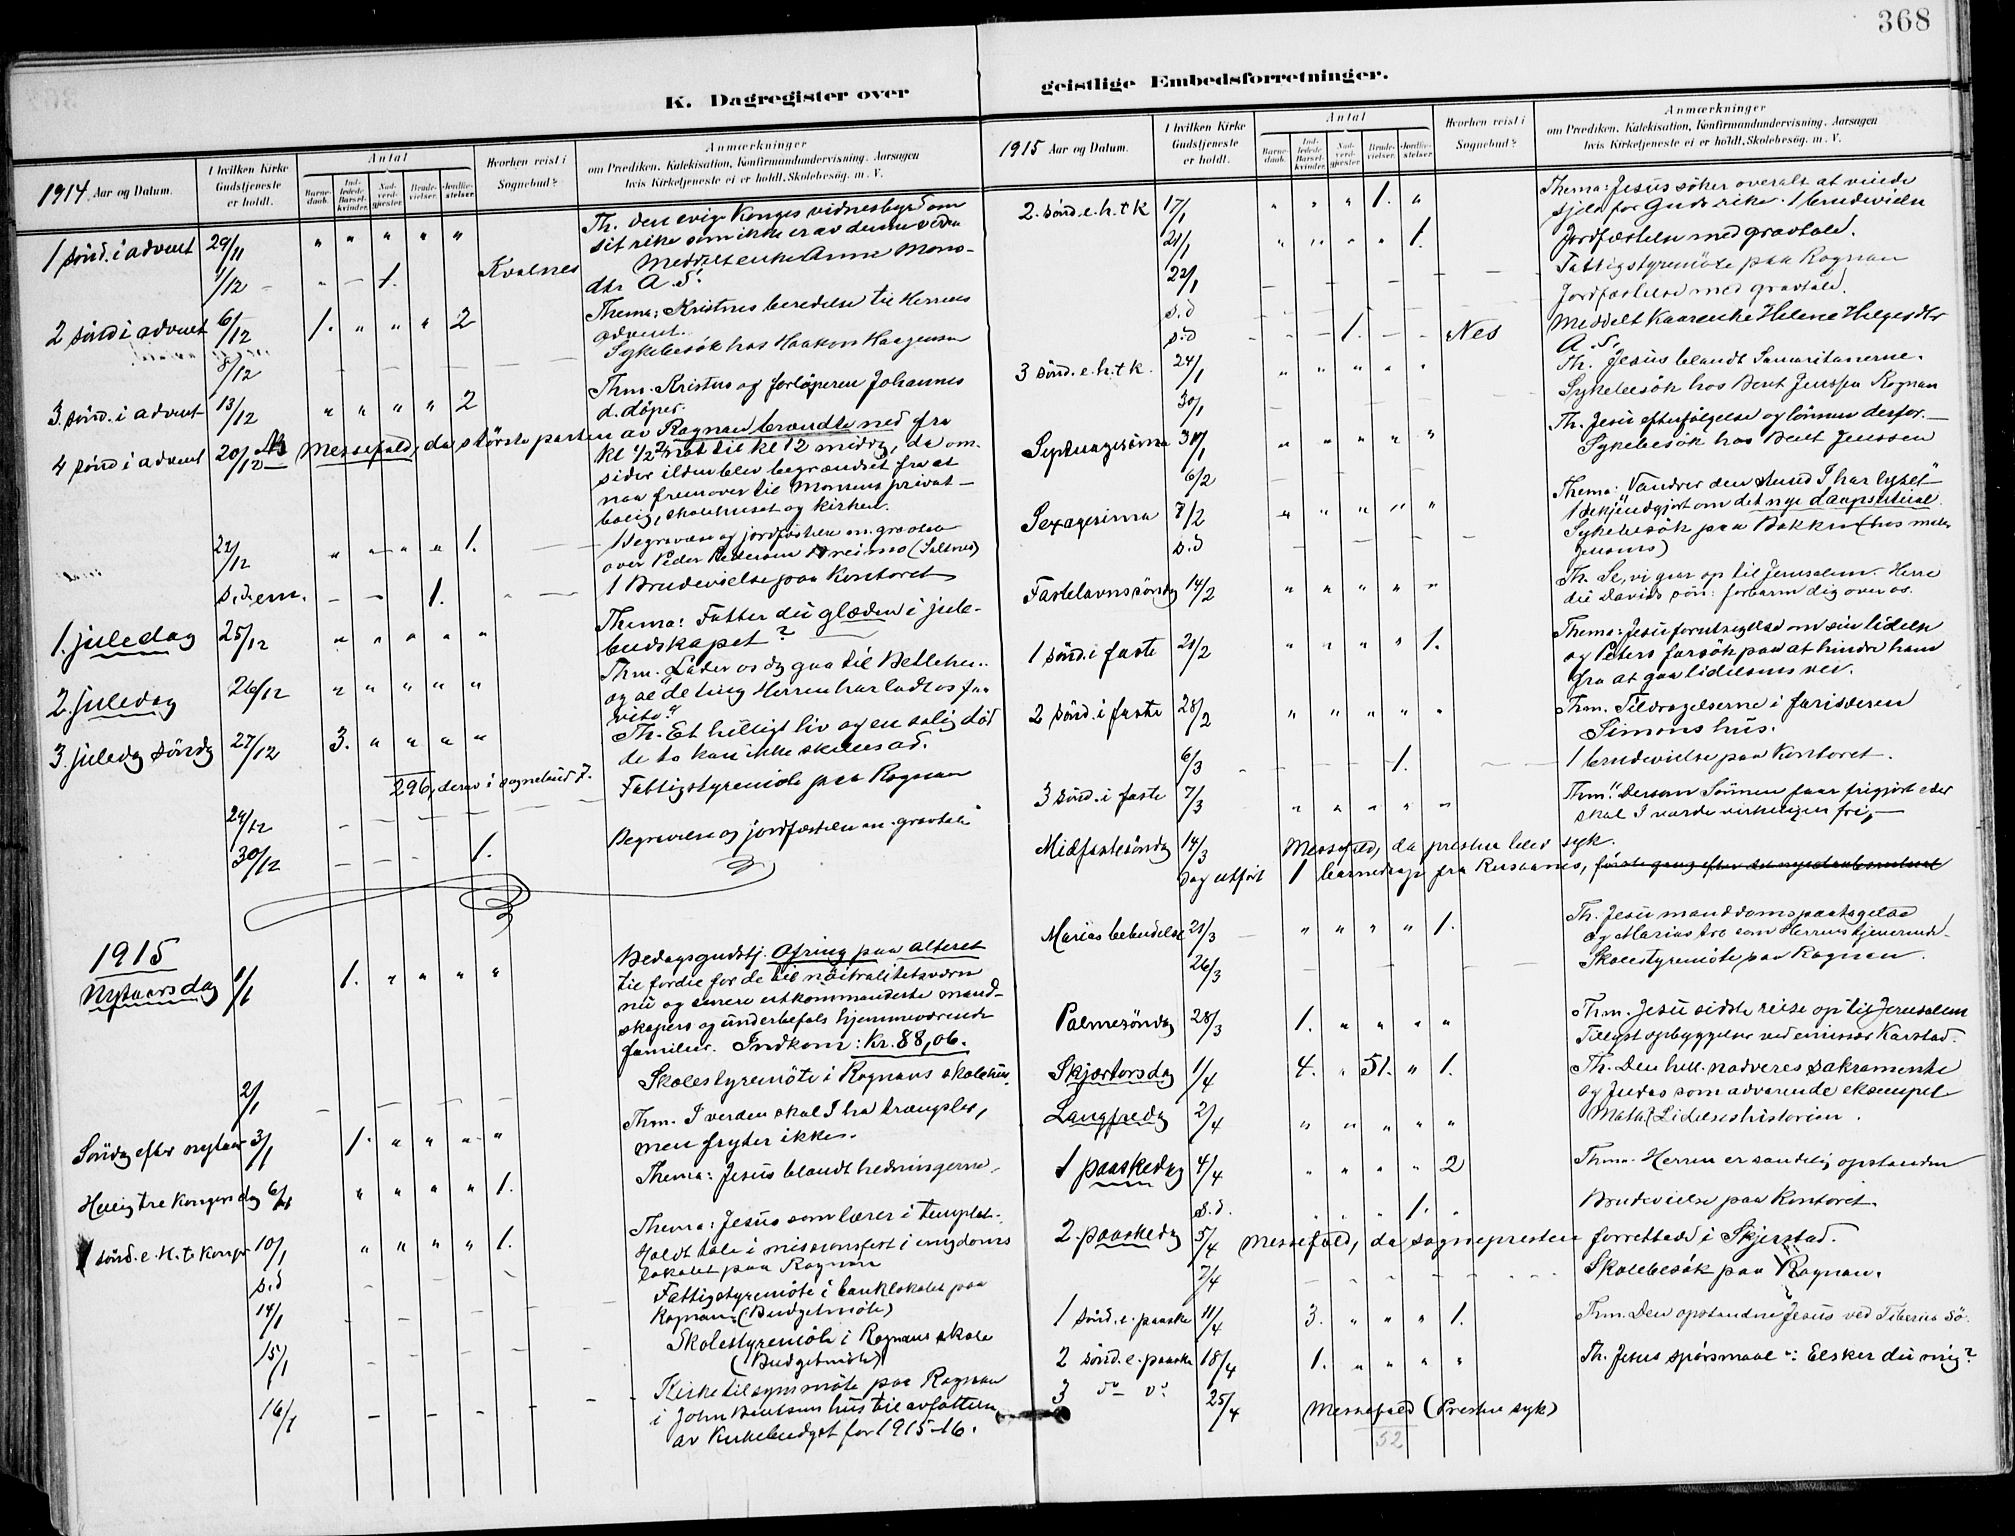 368
K. Dagregister over
1914 Aar og Datum.
I hvilken Kirke Gudstjeneste er holdt.
Antal
Barnedaab.
Indledede Barselkvinder.
Nadverdgjester
Brudevielser.
Jordfæstelser
Hvorhen reist i Sognebud?
Anmærkninger
om Prædiken, Katekisation, Konfirmandundervisning, Aarsagen
hvis Kirketjeneste ei er holdt, Skolebesøg. m. V.
1 sönd. i advent 29/11 " " " " " Th. den evige Konges vidnesbyrd om
sit rike som ikke er av denne verden
1/12 - " - 1. Kvalnes Meddelt enke Anne Mons-
dtr A. S.
2 sönd i advent 6/12 1. " " " 2 Thema: Kristnes beredelse til Herrens
advent.
8/12 - - - - - Sykebesök hos Haakon Haagensen
3. sönd. i advent 13/12 " " " " 2 Thm. Kristus og forlöperen Johannes
d. döper.
4 sönd i advent 20/12 Messefald, da störste parten av Rognan brændte ned fra
kl 1/2 2 nat til kl 12 middag, da om-
sider ilden blev begrændset fra at
naa fremover til Momens privat-
bolig, skolehuset og kirken.
22/12 " - " " 1. - - 1 Begravelse og jordfæstelse m. gravtale
over Peder Pedersen Breimo (Saltnes)
s. d. em. - - 1. " - 1 Brudevielse paa Kontoret
1. juledag 25/12 " " " " " Thema: Fatter du glæden i jule-
budskapet?
2. juledag 26/12 " " " " " Thm. Lader os dog gaa til Betlehem
og se de ting Herren har ladt os faa
vite."
3. juledag söndag 27/12 3. " " " " Th. Et helligt liv og en salig död
de to kan ikke skilles ad.
296, derav i sognebud 7.
29/12 - - - - - Fattigstyremöte paa Rognan
30/12 - - - 1. Begravelse og jordfæstelse m. gravtale
1915
Nytaarsdag 1/1 1. " " " " Bedagsgudstj. Ofring paa alteret
til fordel for de til nöitralitetsværn
nu og senere utkommanderte mand-
skapers og underbefals hjemmeværende
familier. Indkom: Kr. 88,06.
2/1 - - - - - Skolestyremöte i Rognans skolehus.
Söndag efter nytaar 3/1 1. " " " " Thm. I verden skal I ha trængsler,
men frygter ikke.
Hellig tre kongers dag 6/1 " " " " 1. Thema: Jesus blandt hedningerne.
1 sönd. e. H. t. konger 10/1 " " " " 1. Thema: Jesus som lærer i templet.
s. d - - - Holdt tale i missionsfest i ungdoms
lokalet paa Rognan
14/1 - - - Fattigstyremöte i banklokalet paa
Rognan (Budgetmöte)
15/1 - - - - - Skolestyremöte i Rognans skole
(Budgetmöte)
16/1 - - - - - Kirketilsynsmöte paa Rognan
i John Bentsens hus til avfattelse
av kirkebudget for 1915-16.
geistlige Embedsforretninger.
1915 Aar og Datum.
I hvilken Kirke Gudstjeneste er holdt.
Antal
Barnedaab.
Indledede Barselkvinder.
Nadverdgjester
Brudevielser.
Jordfæstelser
Hvorhen reist i Sognebud?
Anmærkninger
om Prædiken, Katekisation, Konfirmandundervisning, Aarsagen
hvis Kirketjeneste ei er holdt, Skolebesøg. m. V.
2. sönd. e. h. t k 17/1 " " " 1. " Thema: Jesus söker overalt at vinde
sjele for Guds rike. 1 brudevielse
21/1 " " " " 1. Jordfæstelse med gravtale.
22/1 - - - - - Fattigstyremöte paa Rognan
s. d - - - - Jordfæstelse med gravtale.
s. d - - 1. - - Nes Meddelt Kaarenke Helene Helgesdtr
A. S.
3 sönd. e. h. t k. 24/1 " " " " " Th. Jesus blandt Samaritanerne.
30/1 - - - - Sykebesök hos Bent Jenssen Rognan
Septuagesima 31/1 " " " " " Th. Jesu efterfölgelse og lönnen derfor.
6/2 - - - Sykebesök hos Bent Jenssen
Sexagesima 7/2 " " " " " Thema: Vandrer den stund I har lyset"
Bekjendtgjort om det nye daapsritual.
s. d - - - - Sykebesök paa Bakken (hos
Jensens)
Fastelavnssöndag 14/2 " " " " " Th. Se, vi gaar op til Jerusalem. Herre
du Davids sön: forbarm dig over os.
1 sönd. i faste 21/2 " " " " 1. Thema: Jesu forutsigelse om sin lidelse
og Peters forsök paa at hindre ham
fra at gaa lidelsens vei.
2 sönd. i faste 28/2 " " " " " Thm. Tildragelserne i farisæeren
Simons hus.
6/3 - - - 1. - - 1 brudevielse paa Kontoret.
3 sönd. i faste 7/3 " " " " " Thm." Dersom Sönnen faar frigjort eder
skal I vorde virkeligen fri"
Midfastesöndag 14/3 Messefald, da presten blev syk.
Dog utfört 1 barnedaap fra Rusaanes, förste gang efter det nye daabsritual
Marias bebudelse 21/3 - " " " " 1. Th. Jesu manddomspaatagelse
og Marias tro som Herrens tjenerinde.
26/3 - - - - - Skolestyremöte paa Rognan.
Palmesöndag 28/3 1. " " " " Thm. Jesu sidste reise op til Jerusalem
Tillyst opbyggelse ved emissær Karstad.
Skjærtorsdag 1/4 4. " 51. " 1. Th. Den hell. nadveres sakramente
og Judas som advarende eksempel
Langfredag 2/4 " " " " " Math. Lidelseshistorien.
1 paaskedag 4/4 " " " " 2 Thema. Herren er sandelig opstanden
s. d. . . . 1. . Brudevielse paa Kontoret.
2. paaskedag 5/4 Messefald, da sognepresten forrettet i Skjerstad.
7/4 - - - - - Skolebesök paa Rognan.
1 sönd. e. paaske 11/4 3. " " " 1. Thm. Den opstandne Jesus ved Tiberias Sö.
2 sönd. e. paaske 18/4 1. " " " " Th. Jesus spörsmaal": Elsker du mig?
3 do do 25/4 Messefald (Presten syk)
52